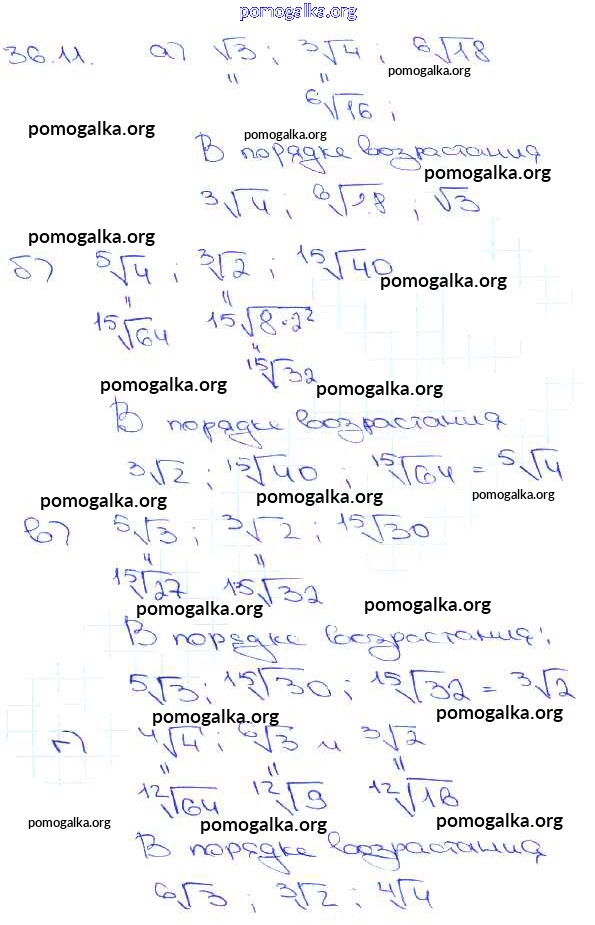 pomogalka.org
36.11. а) √3 ; ³√4 ; ⁶√18
pomogalka.org
" "
⁶√16 ;
pomogalka.org
pomogalka.org
В порядке возрастания
pomogalka.org
³√4 ; ⁶√18 ; √3
pomogalka.org
б) ⁵√4 ; ³√2 ; ¹⁵√40
pomogalka.org
" "
¹⁵√64 ¹⁵√8·2²
"
¹⁵√32
pomogalka.org pomogalka.org
В порядке возрастания
³√2 ; ¹⁵√40 ; ¹⁵√64 = ⁵√4
pomogalka.org pomogalka.org pomogalka.org
в) ⁵√3 ; ³√2 ; ¹⁵√30
" "
¹⁵√27 ¹⁵√32
pomogalka.org pomogalka.org
В порядке возрастания:
⁵√3 ; ¹⁵√30 ; ¹⁵√32 = ³√2
pomogalka.org
pomogalka.org
г) ⁴√4 ; ⁶√3 и ³√2
" " "
pomogalka.org
¹²√64 ¹²√9 ¹²√16
pomogalka.org pomogalka.org pomogalka.org
В порядке возрастания
⁶√3 ; ³√2 ; ⁴√4